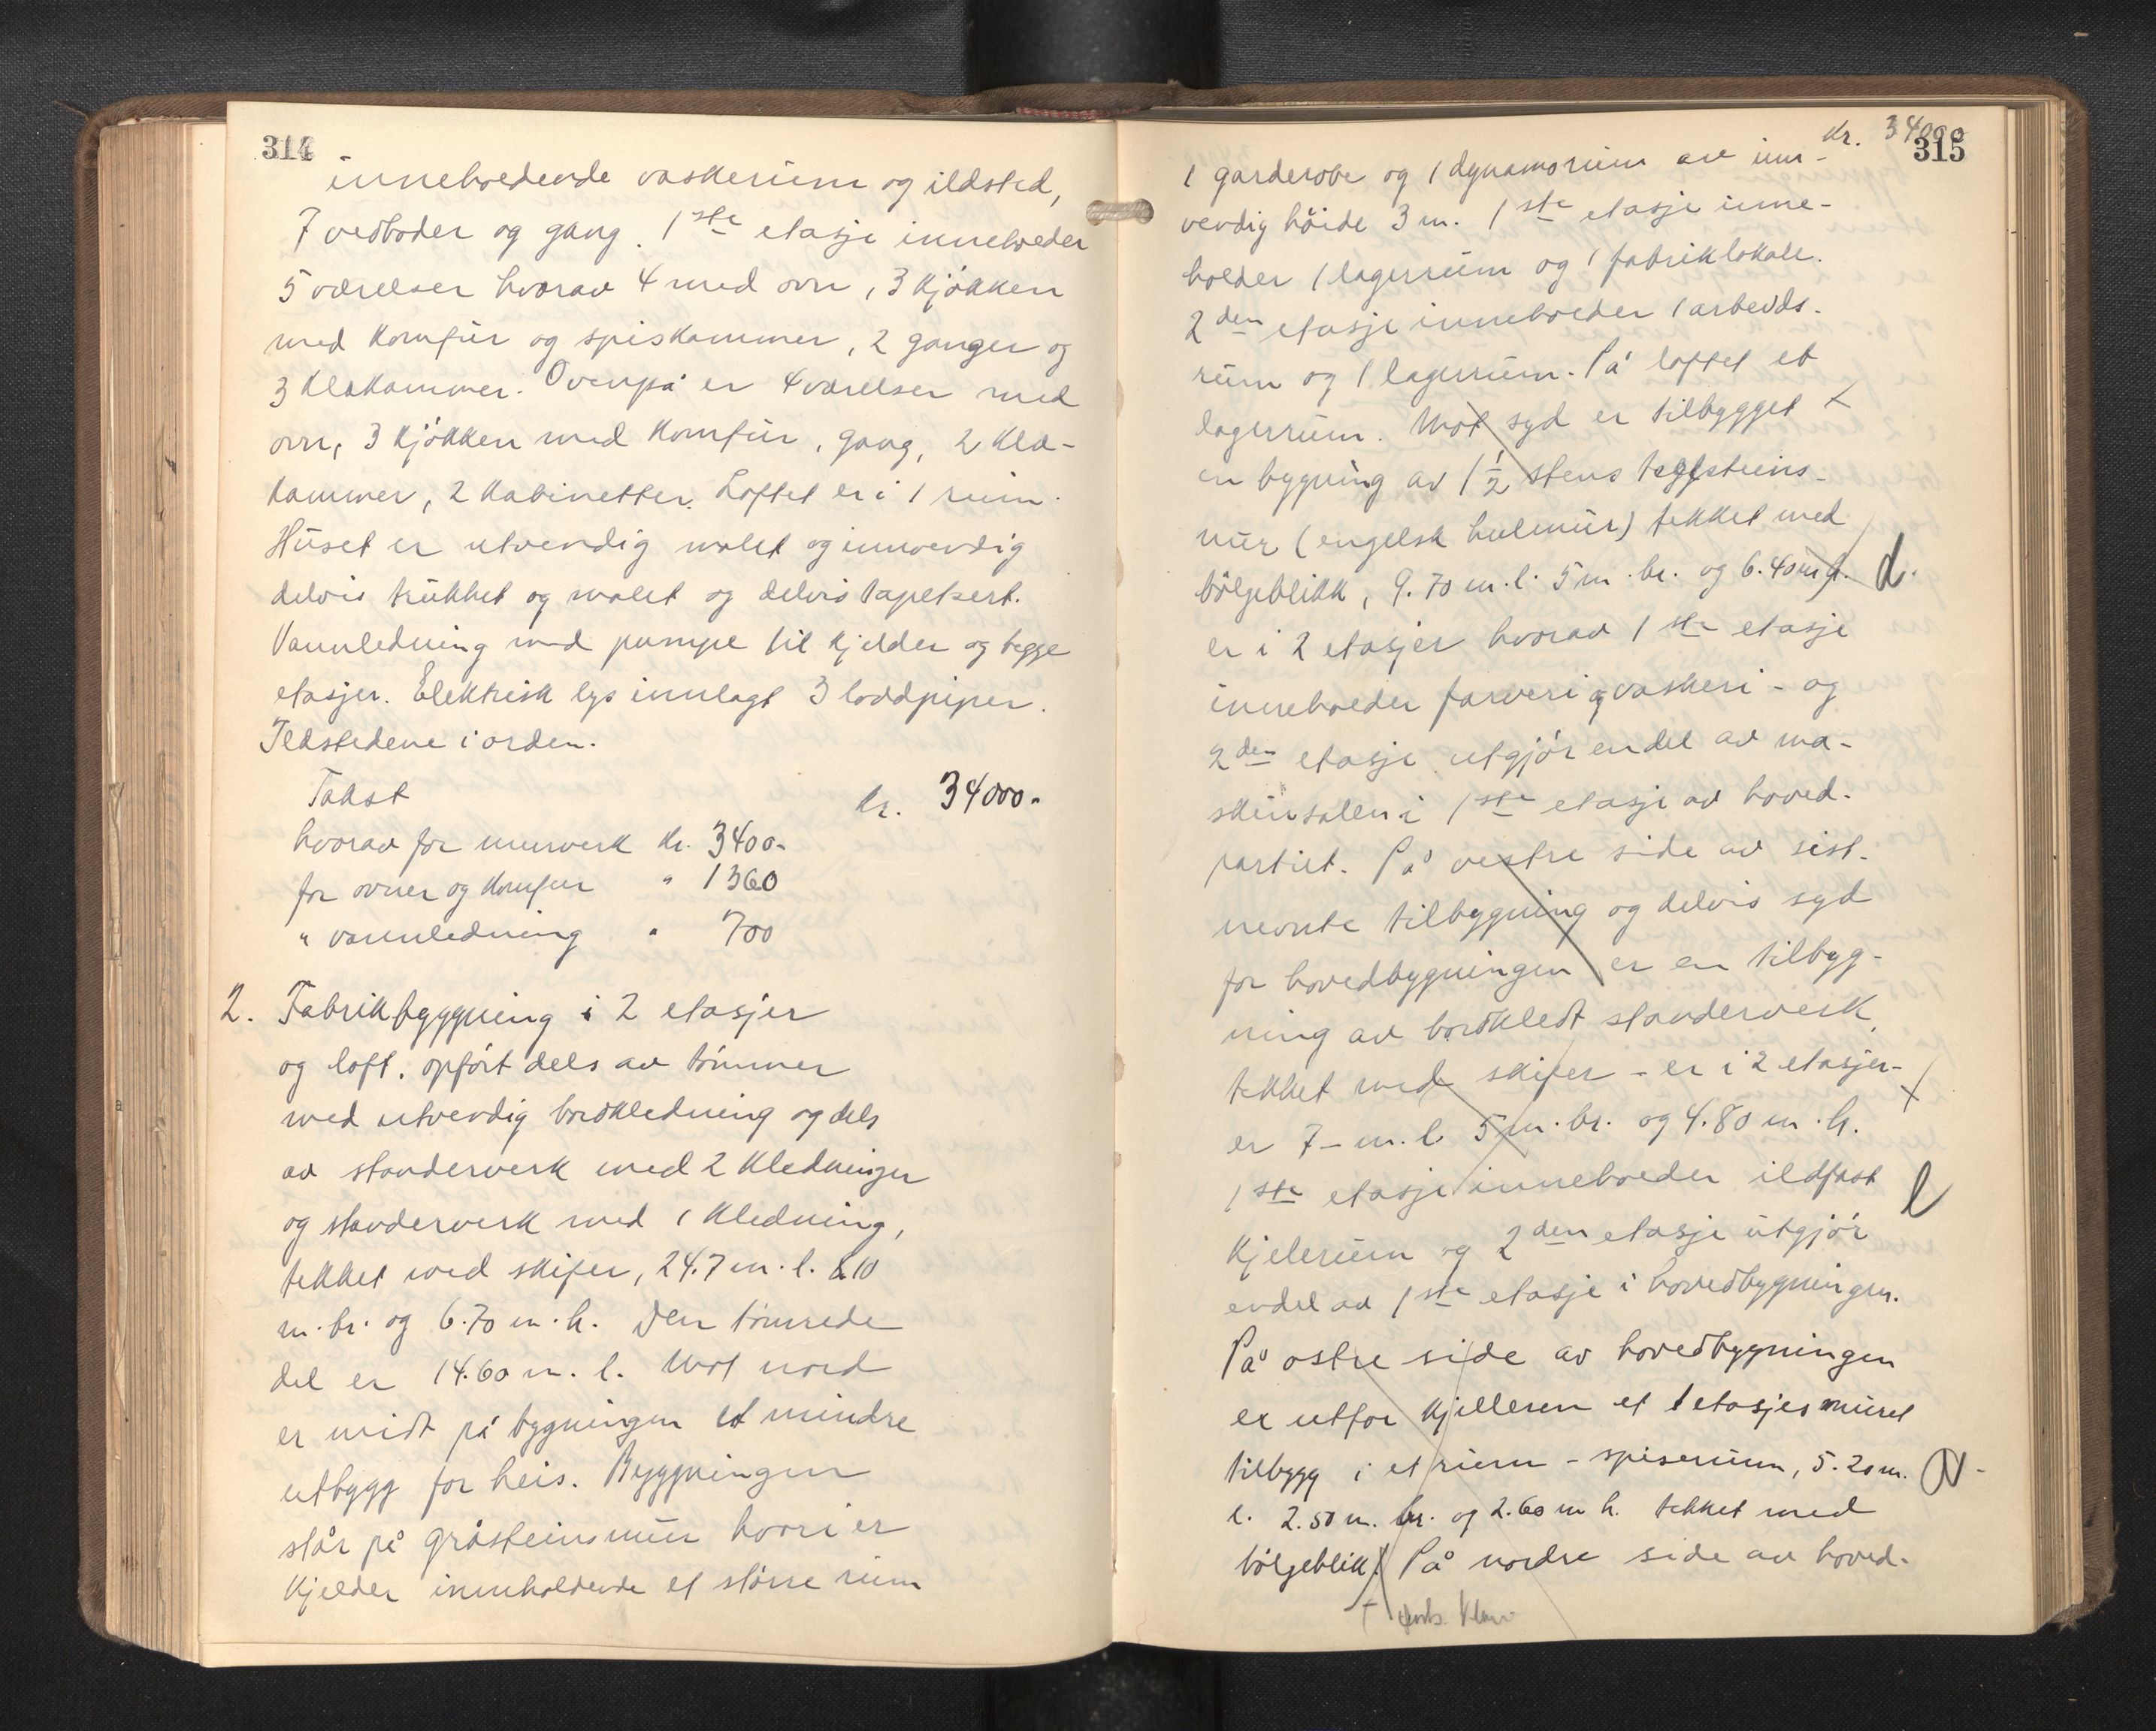 314
inneholdende vaskerum og ildsted,
7 vedboder og gang. 1ste etasje inneholder
5 værelser hvorav 4 med ovn, 3 kjøkken
med komfur og spiskammer, 2 ganger og
3 klekammer. Ovenpå er 4 værelser med
ovn, 3 kjøkken med komfur, gang, 2 kle-
kammer, 2 kabinetter. Loftet er i 1 rum.
Huset er utvendig malet og innvendig
delvis trukket og malet og delvis tapetsert.
Vannledning med pumpe til kjelder og begge
etasjer. Elektrisk lys innlagt 3 loddpiper.
Ildstedene i orden.
Takst kr. 34000.-
hvorav for murverk kr. 3400.-
for ovner og komfur " 1360
" vannledning " 700
2. Fabrikbyggning i 2 etasjer
og loft. opført dels av tømmer
med utvendig bordkledning og dels
av standerverk med 2 kledninger
og standerverk med 1 kledning,
tekket med skifer, 24.7 m. l. 8.10
m. br. og 6.70 m. h. Den tømrede
del er 14.60 m. l. Mot nord
er midt på bygningen et mindre
utbygg for heis. Byggningen
står på gråsteinsmur hvori er
kjelder innholdende et større rum
kr. 34000
315
1 garderobe og 1 dynamorum av inn-
vendig høide 3 m. 1ste etasje inne-
holder 1 lagerrum og 1 fabriklokale.
2den etasje inneholder 1 arbeids-
rum og 1 lagerrum. På loftet et
lagerrum. Mot syd er tilbygget
en bygning av 1 1/2 stens teglsteins-
mur (engelsk hulmur) tekket med
bølgeblikk, 9.70 m. l. 5 m. br. og 6.40 m h.
er i 2 etasjer hvorav 1ste etasje
inneholder farveri og vaskeri - og
2den etasje utgjør en del av ma-
skinsalen i 1ste etasje av hoved-
partiet. På vestre side av sist-
nevnte tilbygning og delvis syd
for hovedbygningen er en tilbygg-
ning av bordkledt standerverk,
tekket med skifer - er i 2 etasjer -
er 7 - m. l. 5 m. br. og 4.80 m. h.
1ste etasje inneholder ildfast
kjelerum og 2den etasje utgjør
endel av 1ste etasje i hovedbygningen.
På østre side av hovedbygningen
er utfor kjelleren et 1 etasjes muret
tilbygg i et rum - spiserum, 5.20 m.
l. 2.50 m. br. og 2.60 m h. tekket med
bølgeblik. På nordre side av hoved-